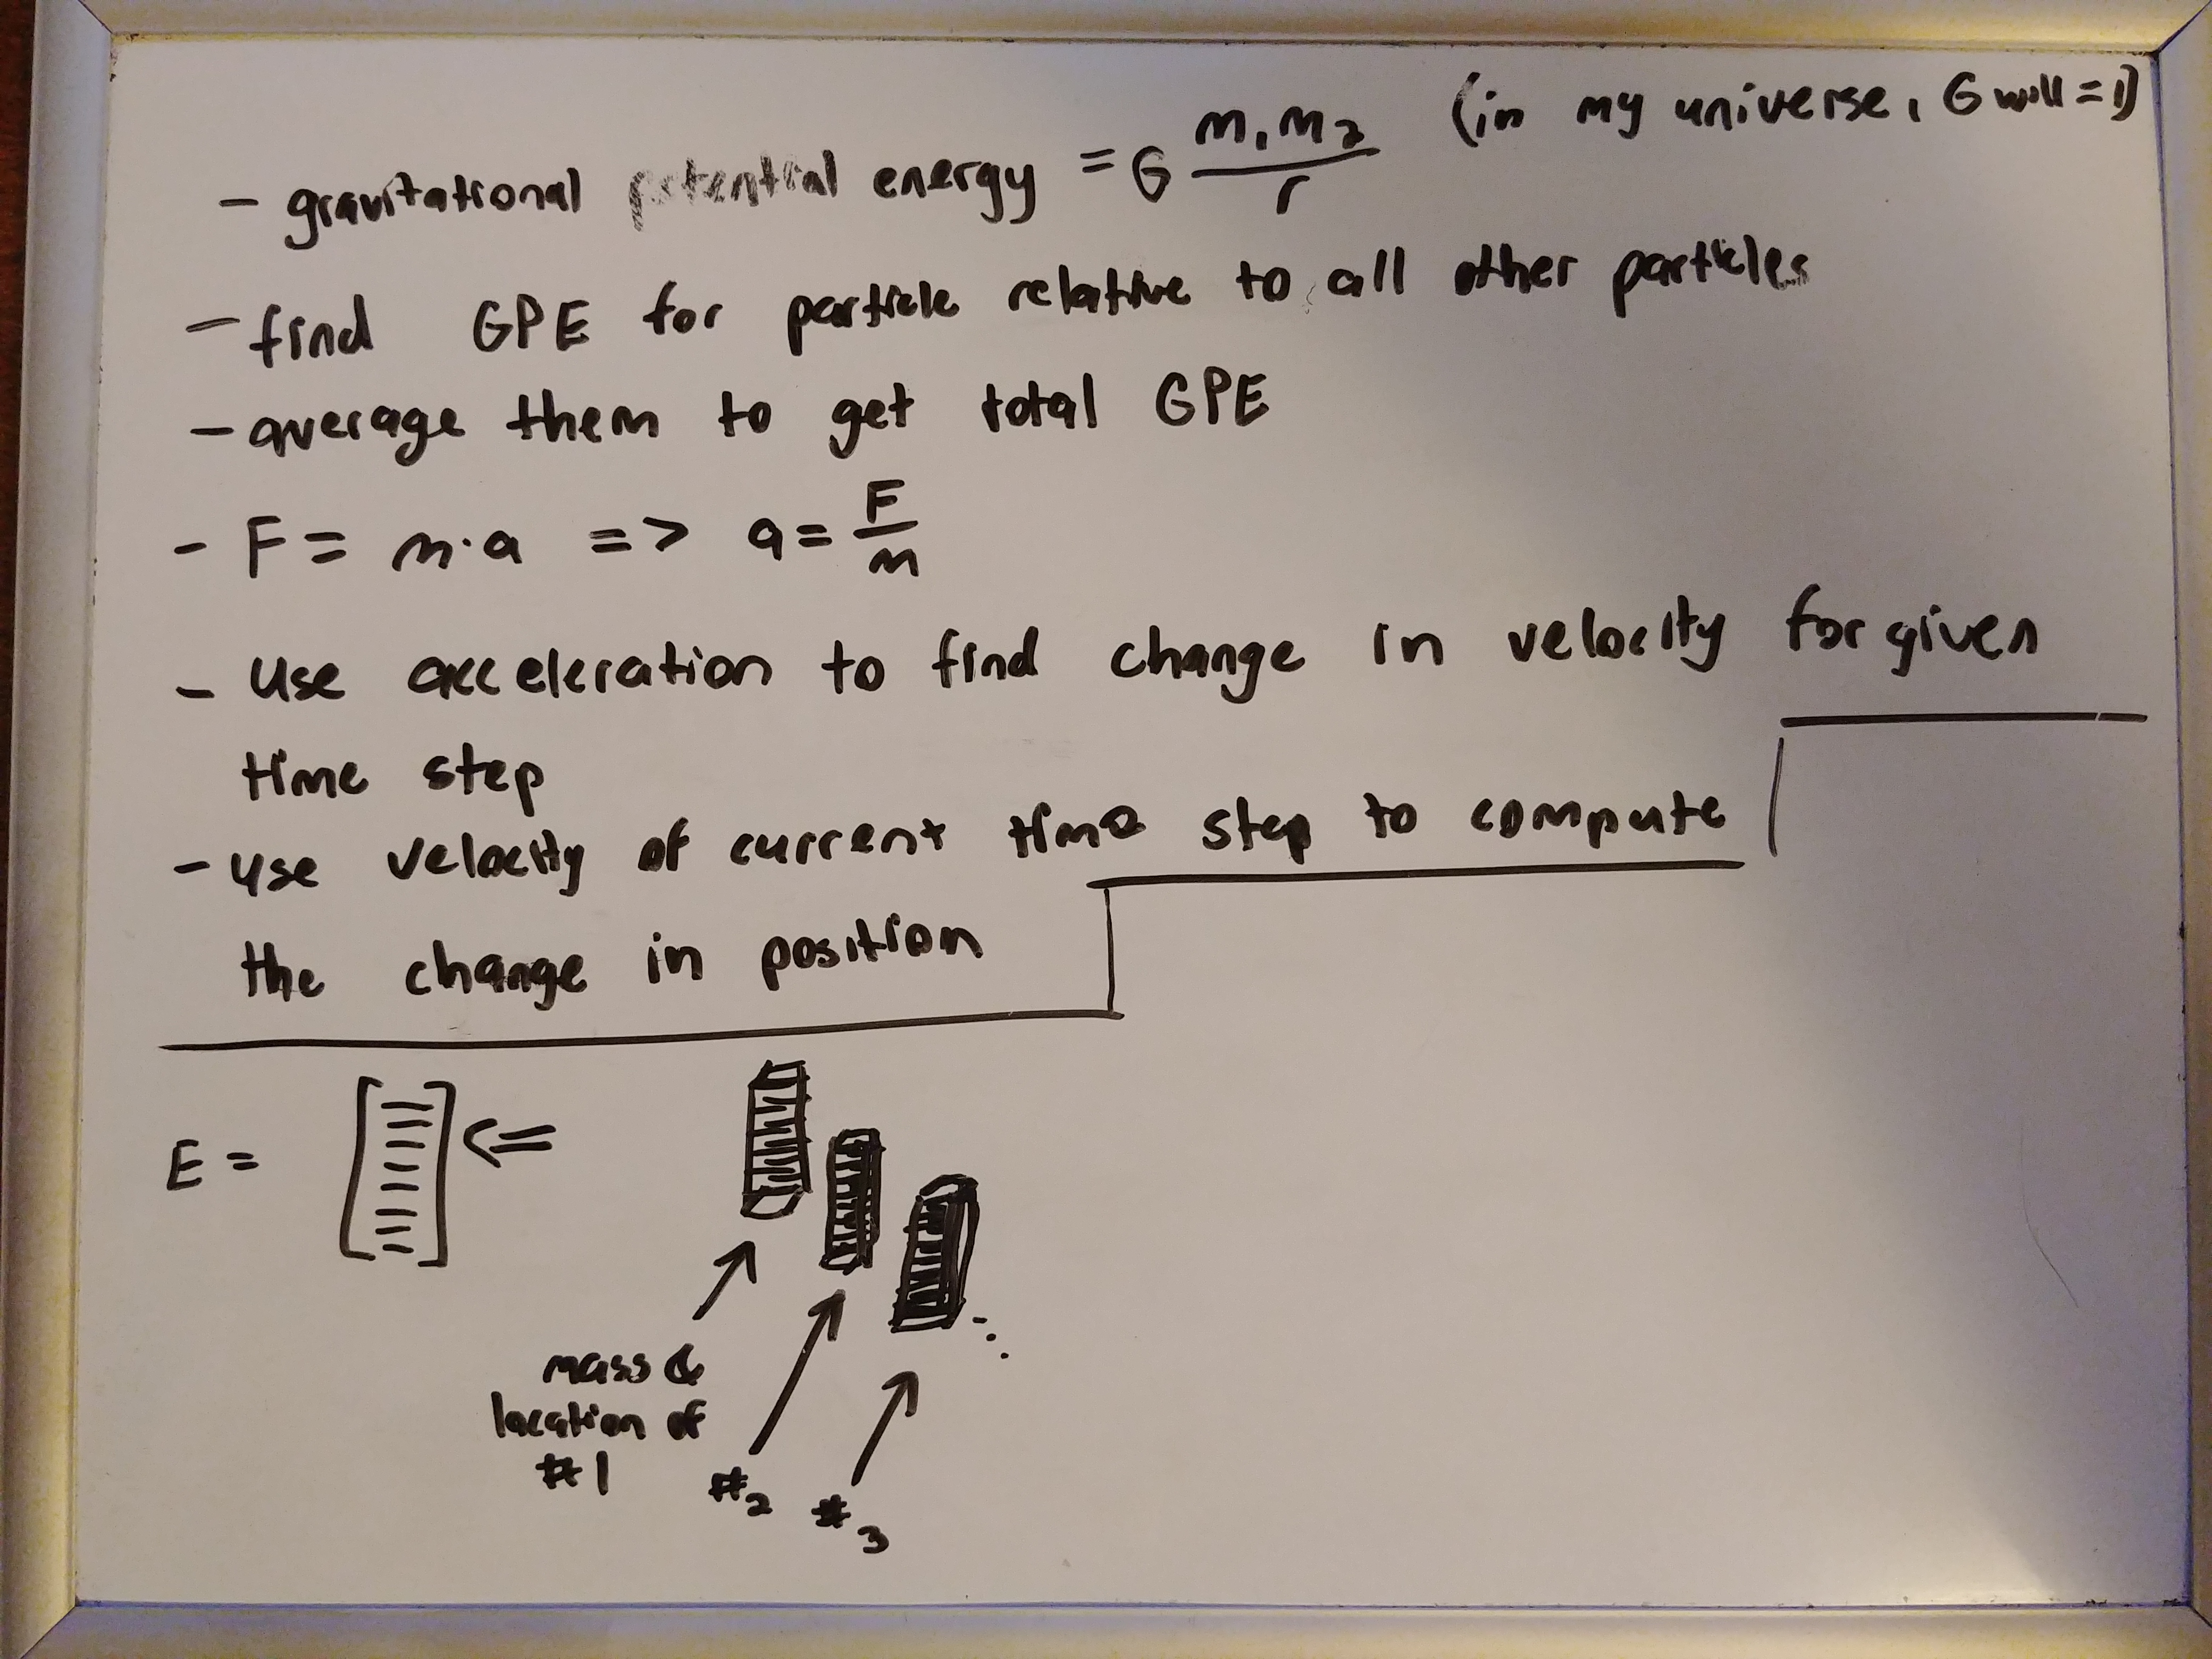 - gravitational potential energy = G m₁m₂/r (in my universe, G will = 1)
- find GPE for particle relative to all other particles
- average them to get total GPE
- F = m·a => a = F/m
- use acceleration to find change in velocity for given
time step
- use velocity of current time step to compute
the change in position
E = [ ] <=
mass &
location of
#1
#2
#3